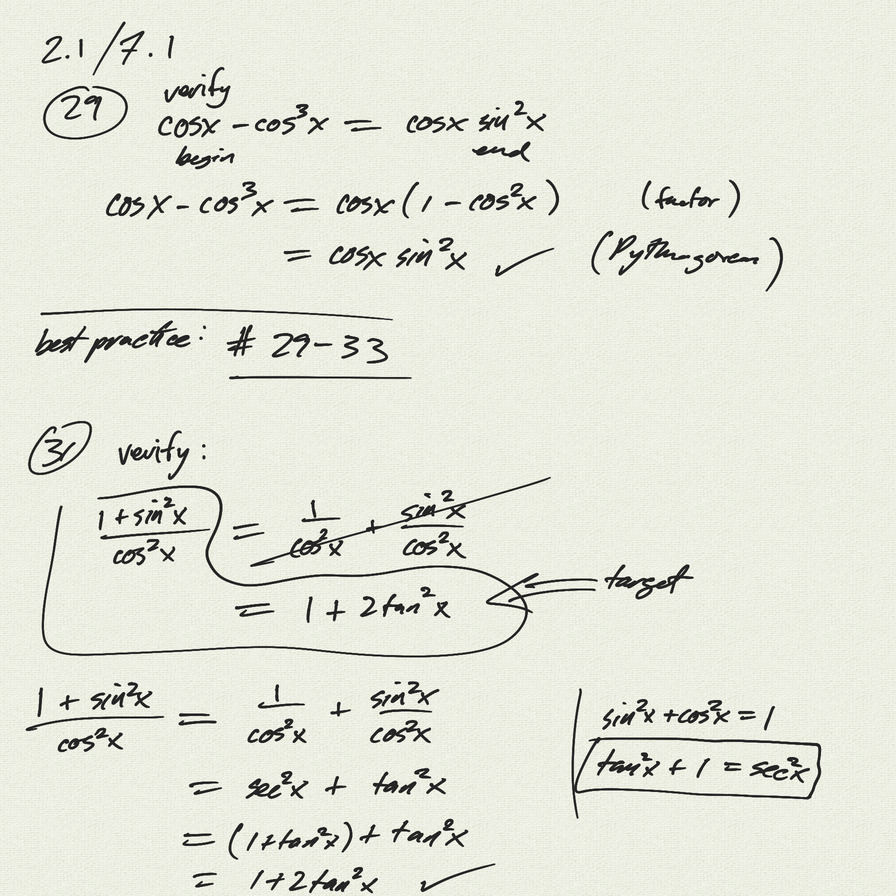 2.1/7.1
29 verify
cosx - cos³x = cosx sin²x
begin end
cosx - cos³x = cosx(1 - cos²x) (factor)
= cosx sin²x ✓ (Pythagorean)
best practice: # 29-33
31 verify:
(1 + sin²x)/(cos²x) = 1/(cos²x) + (sin²x)/(cos²x)
= 1 + 2tan²x target
(1 + sin²x)/(cos²x) = 1/(cos²x) + (sin²x)/(cos²x)
= sec²x + tan²x
= (1+tan²x) + tan²x
= 1+2tan²x ✓
sin²x + cos²x = 1
tan²x + 1 = sec²x